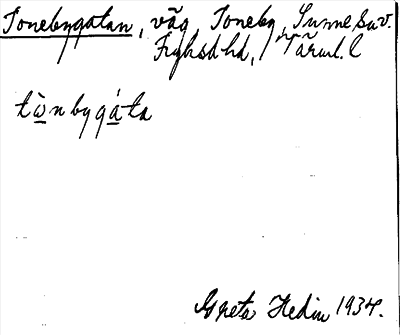 Tonebygatan, väg, Toneby, Sunne, sn v.
Fryksd hd, Värml. l
tὼnbygáta
Greta Hedin 1934.